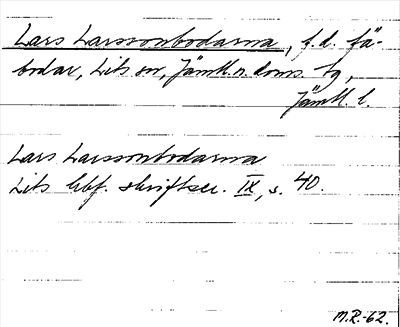 Lars Larssonbodarna, f.d. fä-
bodar, Lits sn, Jämtl. n. doms. tg,
Jämtl. l.
Lars Larssonbodarna
Lits hbf. skriftser. IX, s. 40.
M.R.-62.